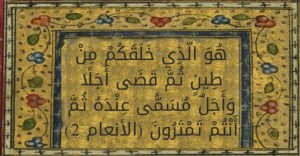 هُوَ الَّذِي خَلَقَكُمْ مِنْ
طِينٍ ثُمَّ قَضَى أَجَلًا
وَأَجَلٌ مُسَمًّى عِنْدَهُ ثُمَّ
أَنْتُمْ تَمْتَرُونَ (الأنعام 2)